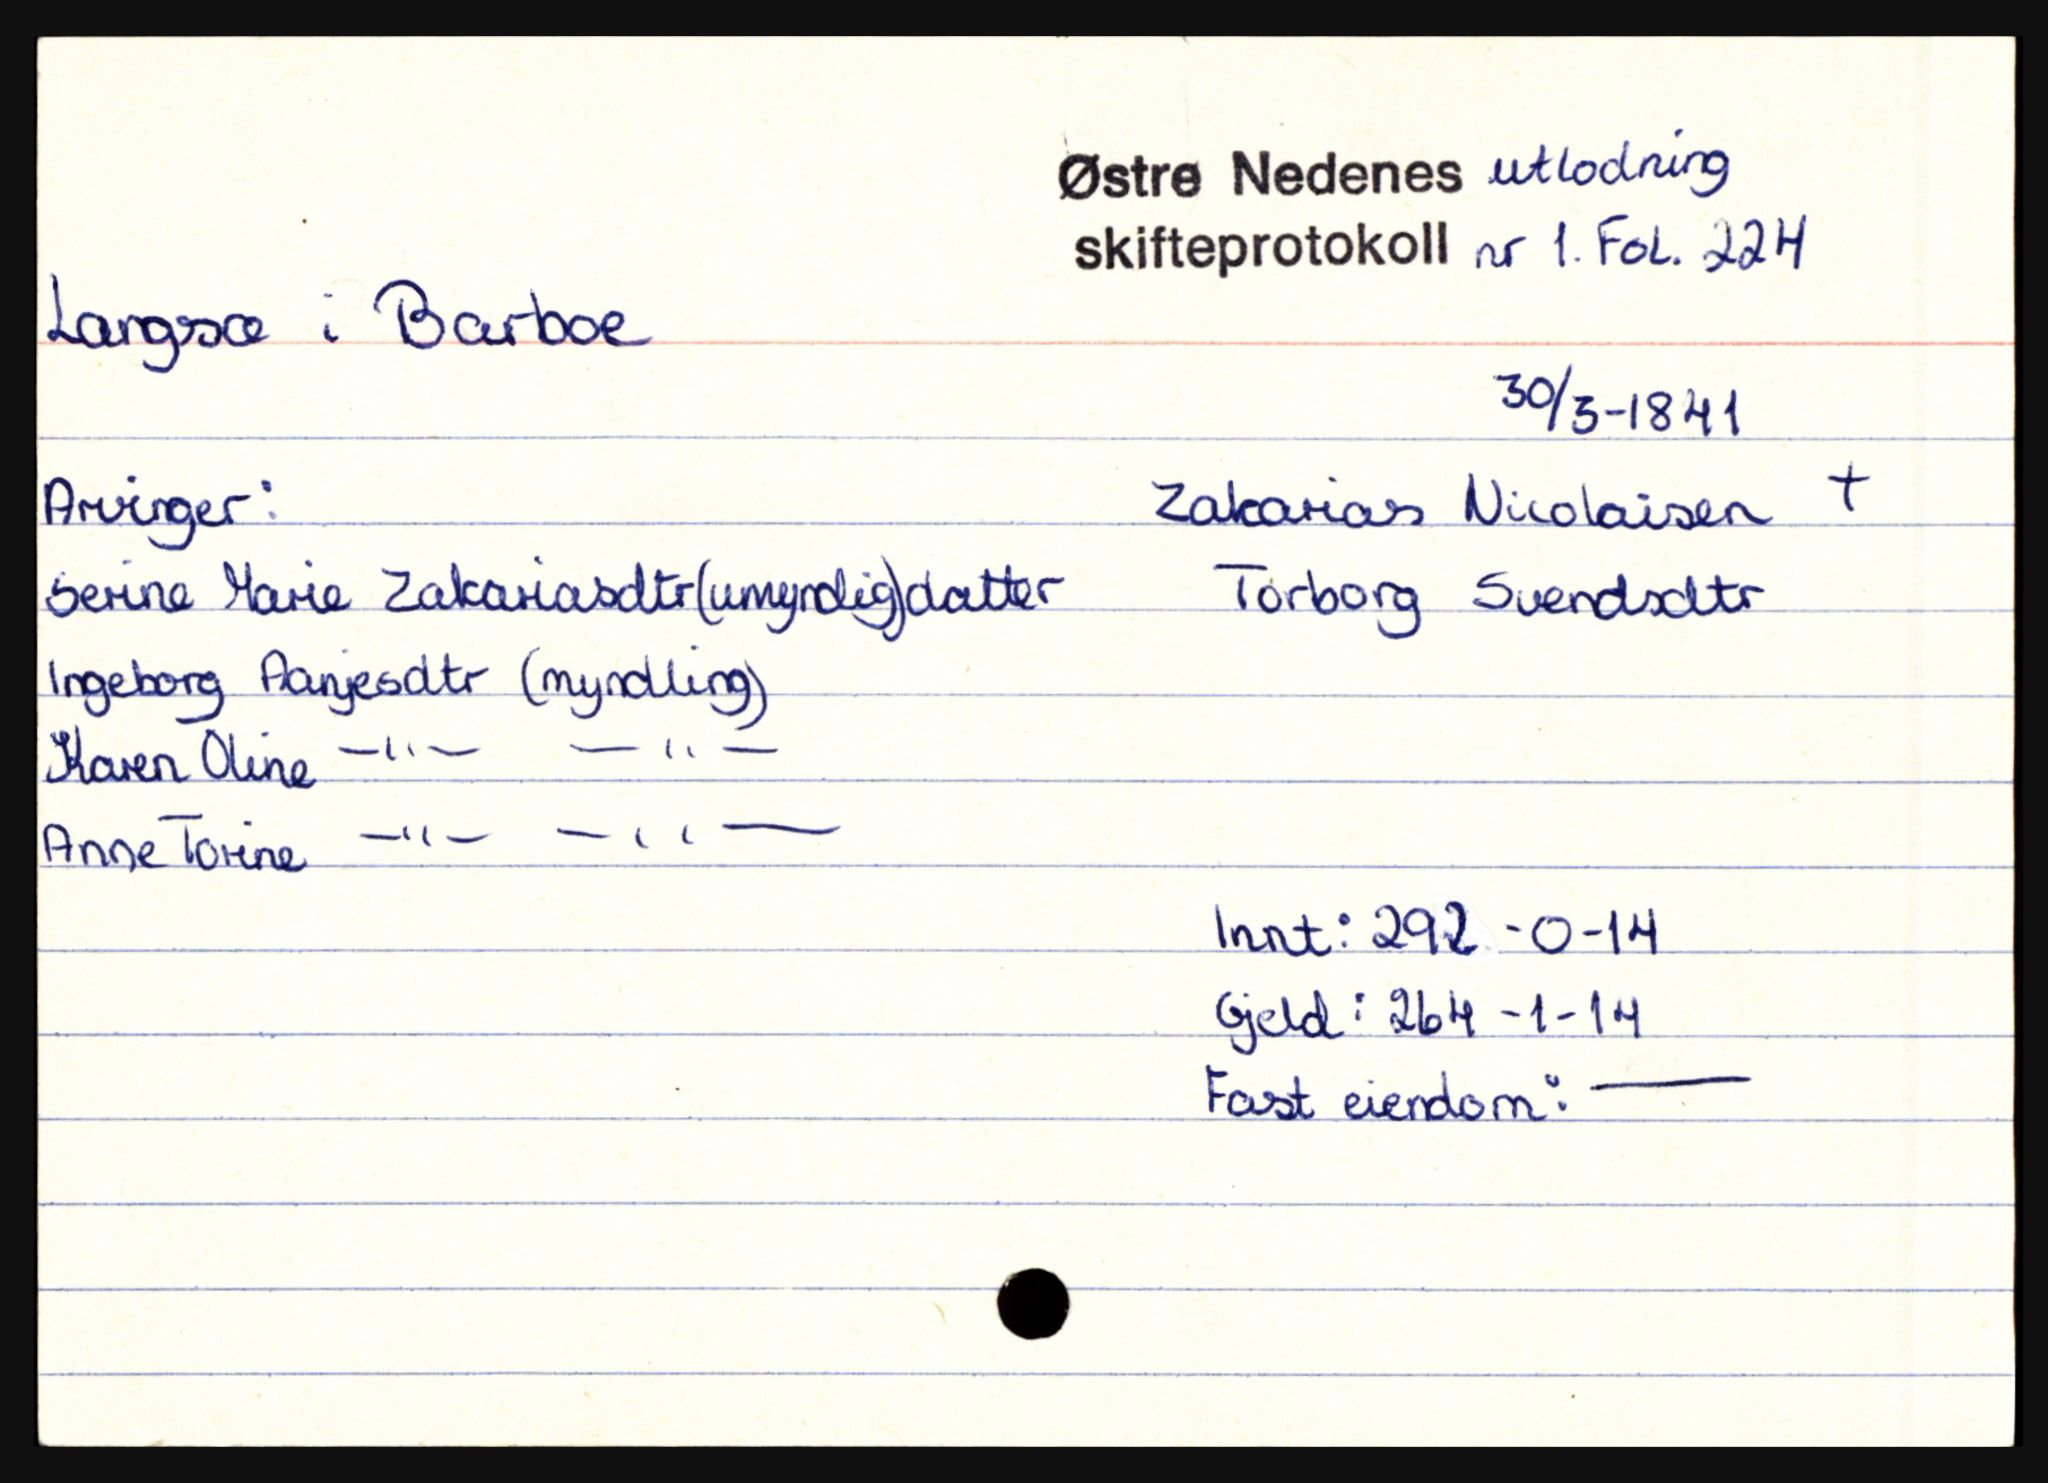 Østre Nedenes utlodning
skifteprotokoll nr 1. Fol. 224
Langsæ i Barboe
30/3-1841
Arvinger: Zakarias Nicolaisen †
Serine Marie Zakariasdtr (umyndig) datter Torborg Svendsdtr
Ingeborg Aanjesdtr (myndling)
Karen Oline —"— —"—
Anne Torine —"— —"—
Innt: 292 -0-14
Gjeld: 264 -1-14
Fast eiendom: —